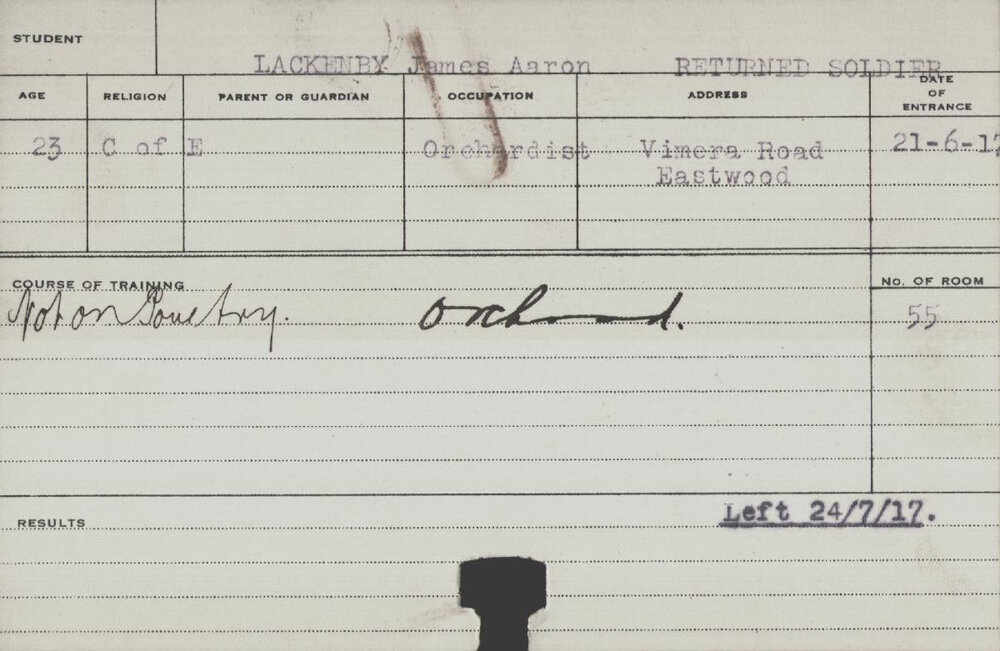 STUDENT
LACKENBY James Aaron RETURNED SOLDIER
AGE RELIGION PARENT OR GUARDIAN OCCUPATION ADDRESS DATE OF ENTRANCE
23 C of E Orchardist Vimera Road 21-6-17
Eastwood
COURSE OF TRAINING No. OF ROOM
Not on Poultry. Orchard. 55
Left 24/7/17.
RESULTS